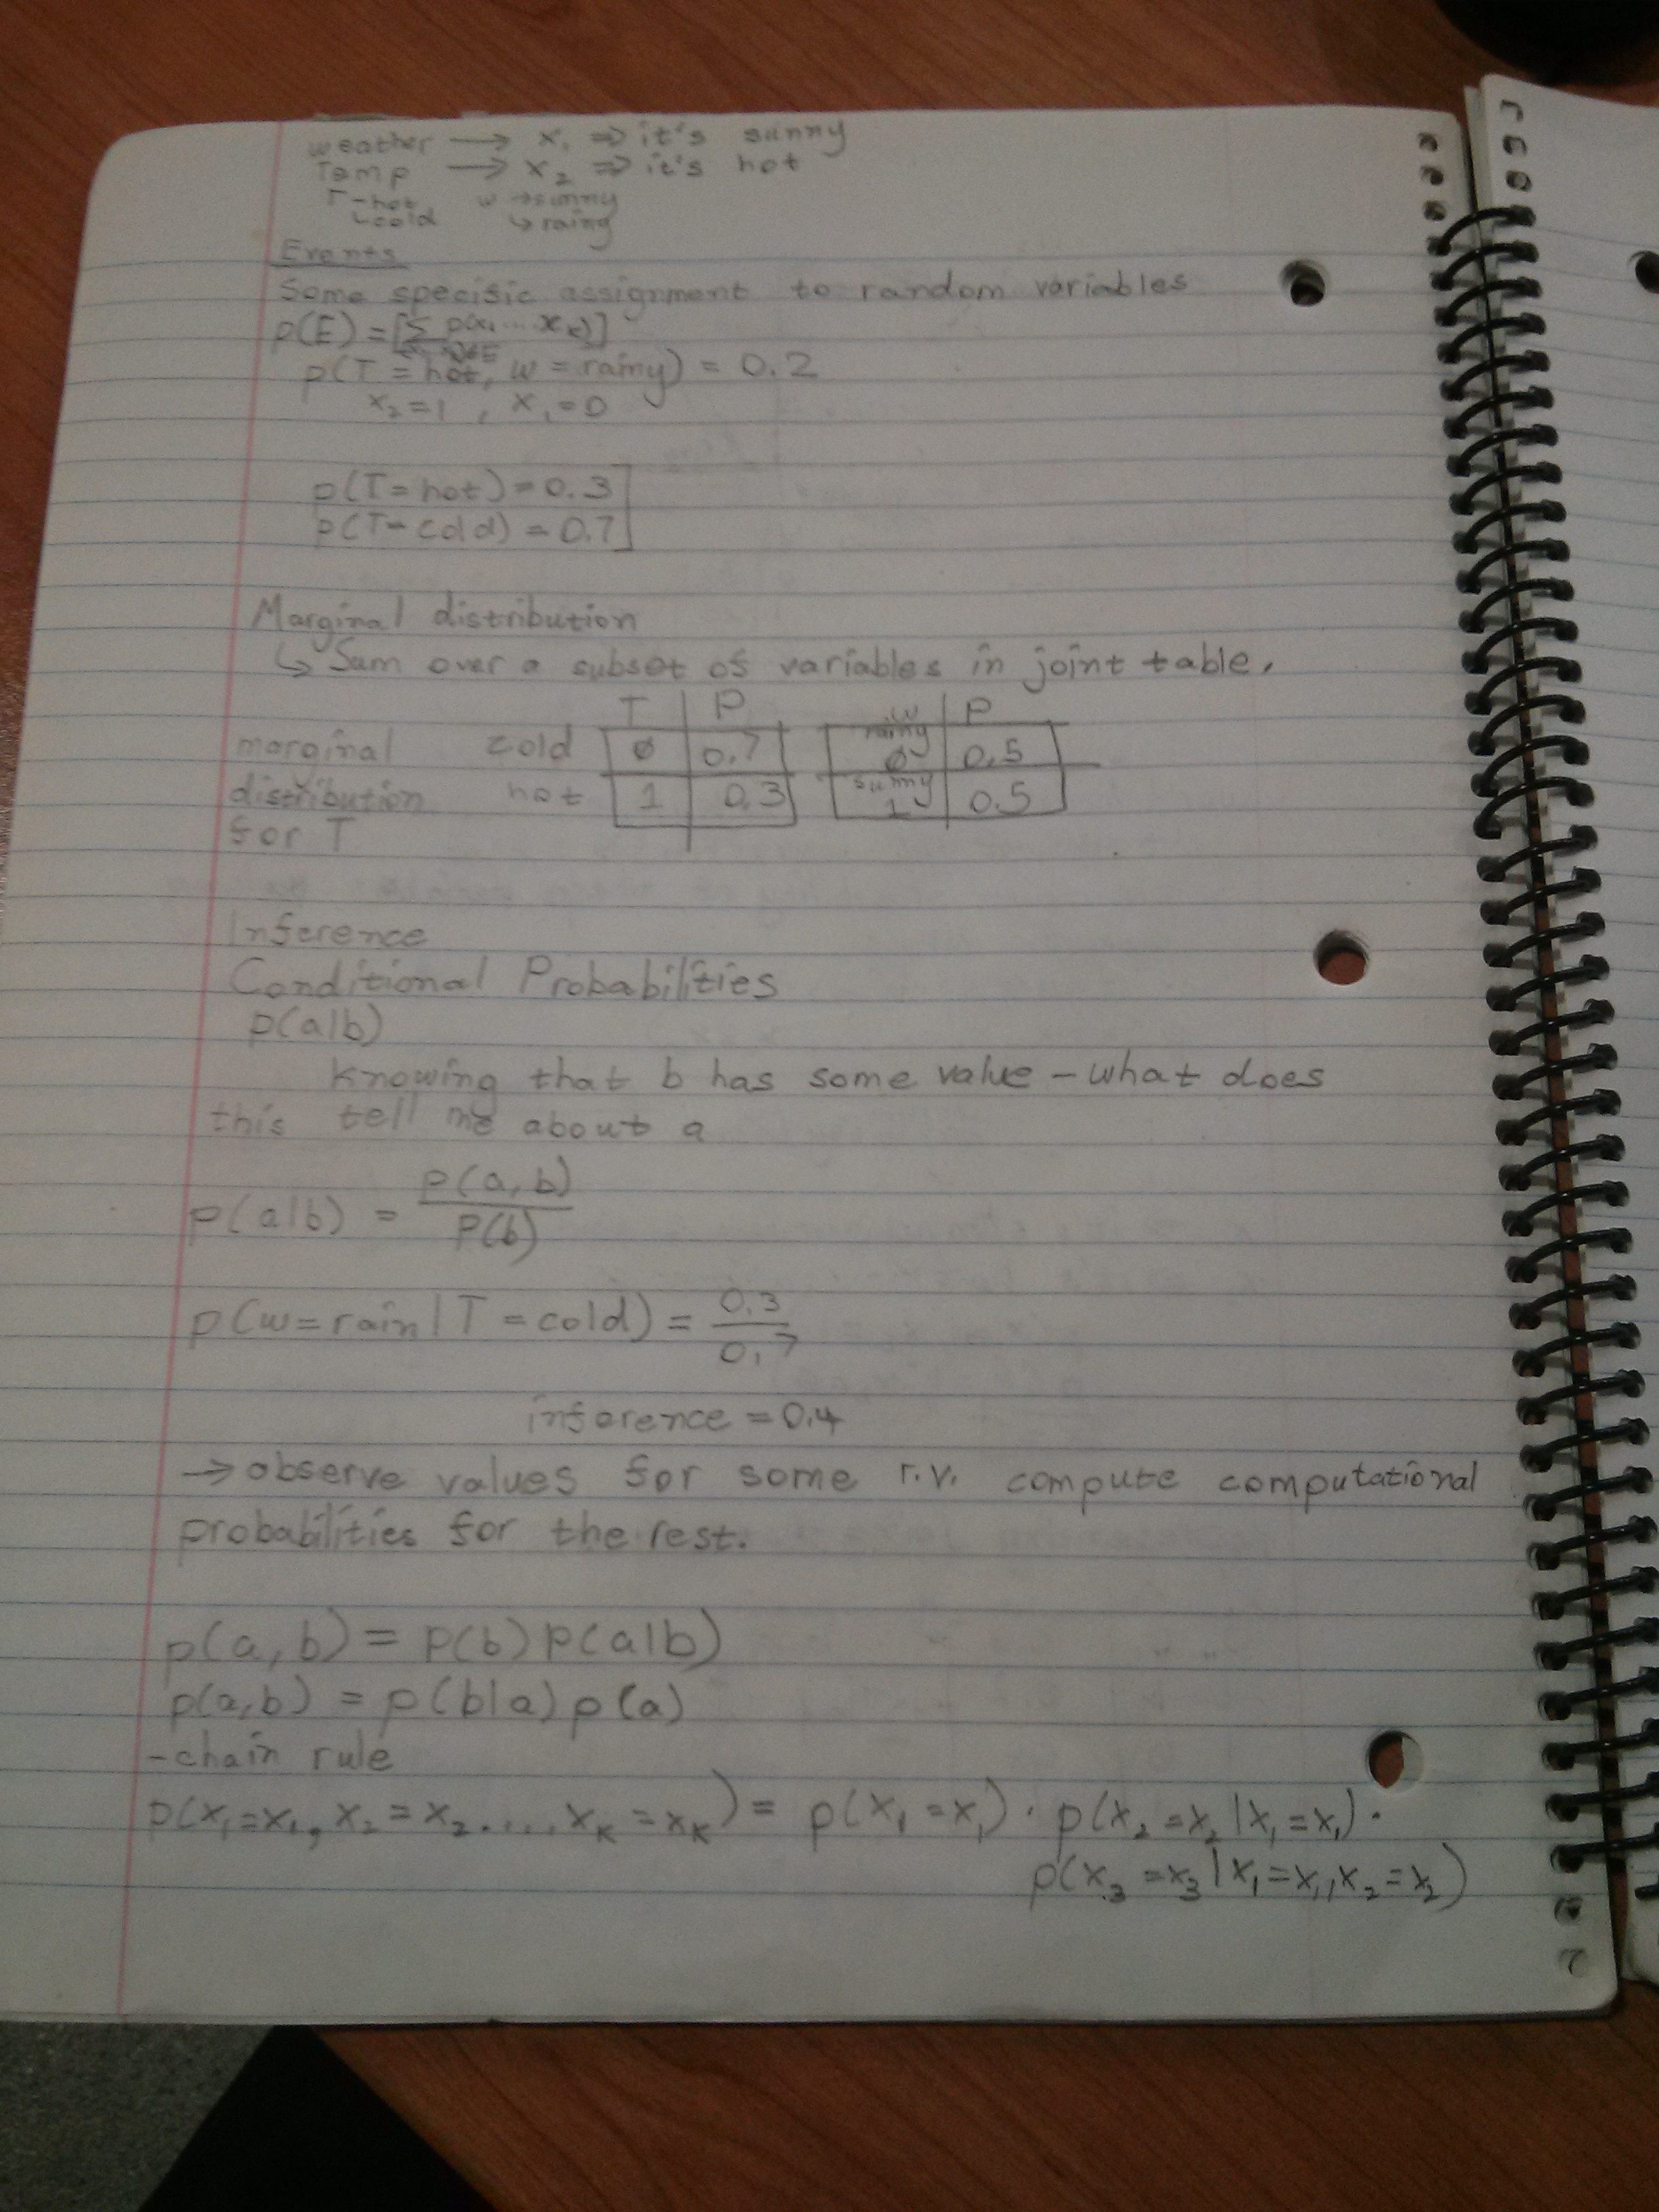 weather → x₁ ⇒ it's sunny
Temp → x₂ ⇒ it's hot
T-hot w→sunny
↳cold ↳rainy
Events
Some specific assignment to random variables
p(E) = [Σ p(x₁...xₖ)]
p(T = hot, w = rainy) = 0.2
x₂=1 , x₁=0
p(T=hot)=0.3
p(T=cold)=0.7
Marginal distribution
↳ Sum over a subset of variables in joint table.
T | P w | P
marginal cold 0 0.7 rainy 0 0.5
distribution hot 1 0.3 sunny 1 0.5
for T
Inference
Conditional Probabilities
p(a|b)
knowing that b has some value - what does
this tell me about a
p(a|b) = p(a,b) / p(b)
p(w=rain | T = cold) = 0.3 / 0.7
inference = 0.4
→ observe values for some r.v. compute computational
probabilities for the rest.
p(a,b) = p(b) p(a|b)
p(a,b) = p(b|a) p(a)
-chain rule
p(x₁=x₁, x₂=x₂....xₖ=xₖ) = p(x₁=x₁) · p(x₂=x₂|x₁=x₁) ·
p(x₃=x₃|x₁=x₁, x₂=x₂)